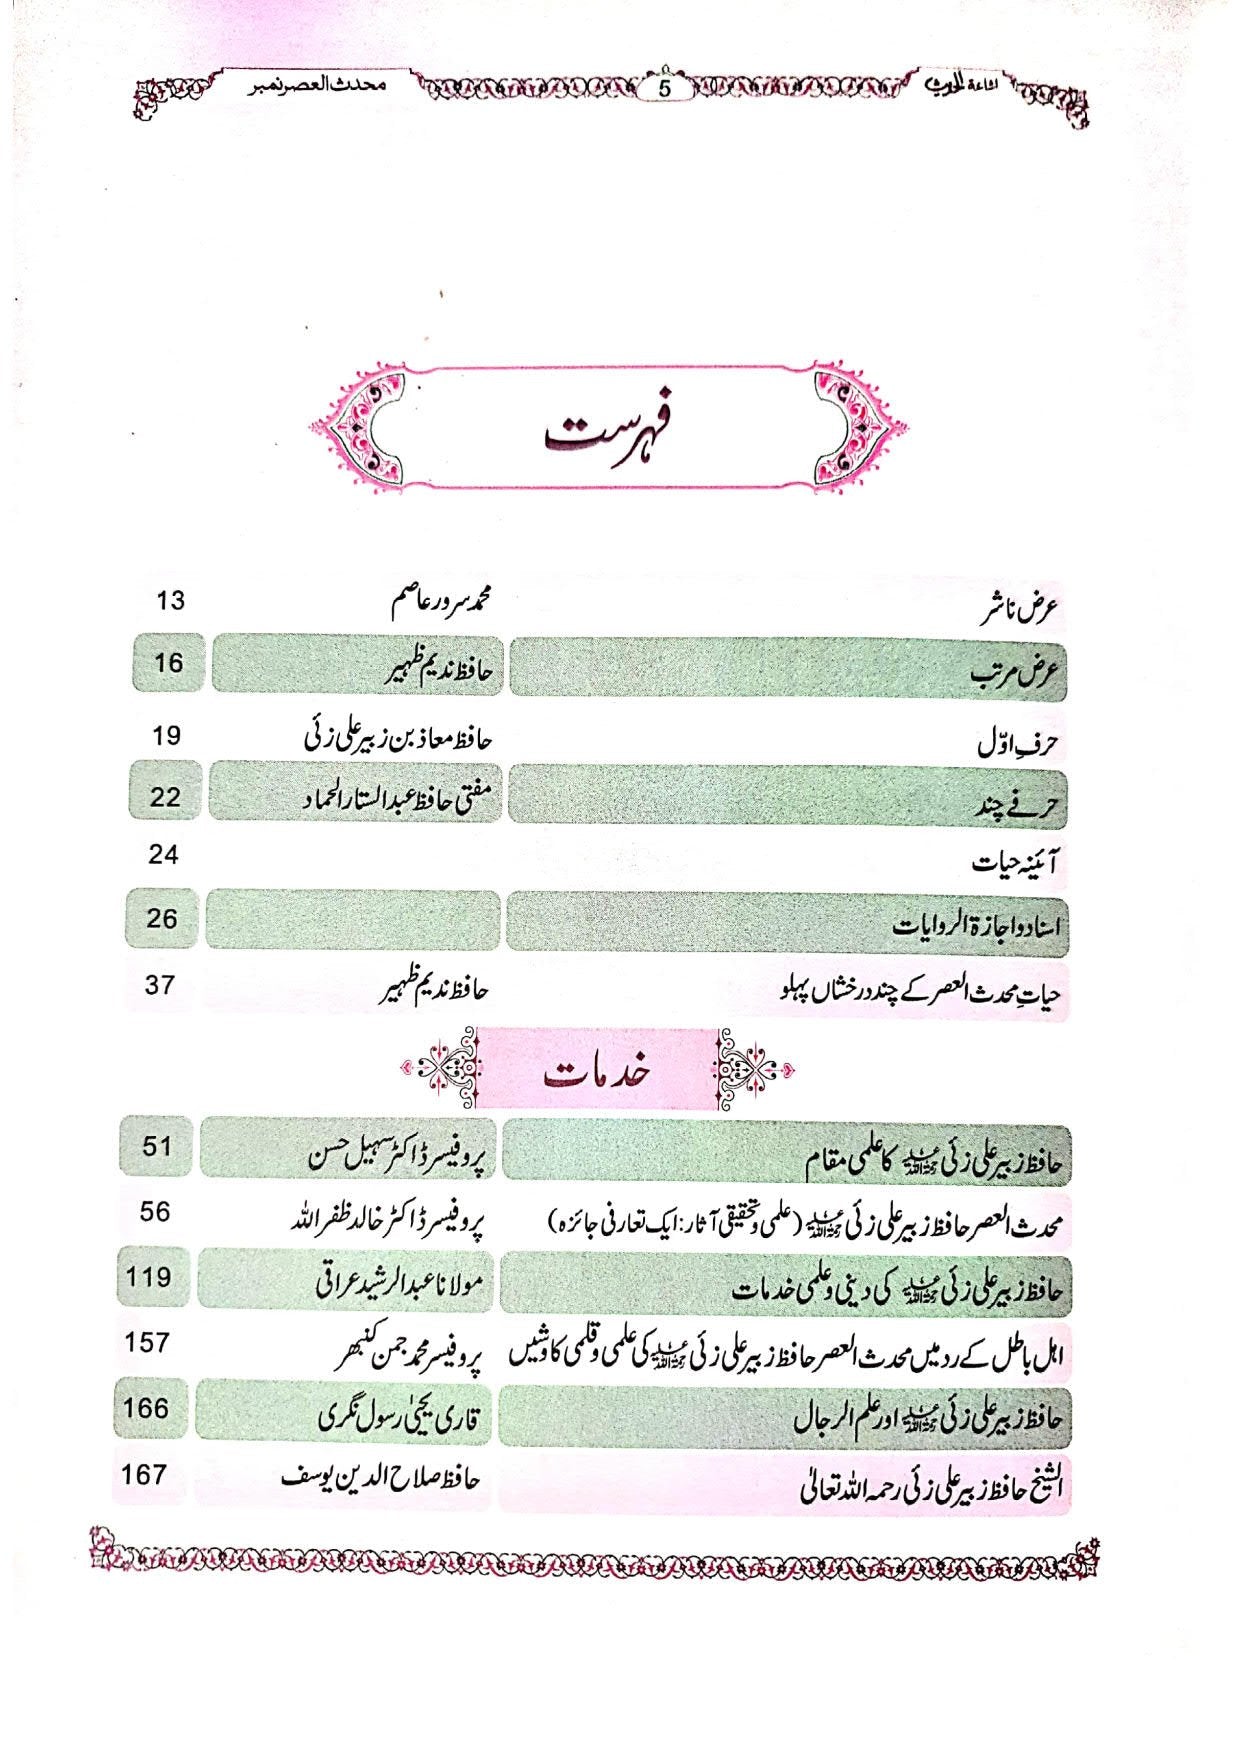 اشاعۃ الحدیث 5 محدث العصر نمبر
فہرست
عرض ناشر محمد سرور عاصم 13
عرض مرتب حافظ ندیم ظہیر 16
حرفِ اوّل حافظ معاذ بن زبیر علی زئی 19
حرفے چند مفتی حافظ عبدالستار الحماد 22
آئینہ حیات 24
اسناد و اجازۃ الروایات 26
حیاتِ محدث العصر کے چند درخشاں پہلو حافظ ندیم ظہیر 37
خدمات
حافظ زبیر علی زئی رحمۃ اللہ علیہ کا علمی مقام پروفیسر ڈاکٹر سہیل حسن 51
محدث العصر حافظ زبیر علی زئی رحمۃ اللہ علیہ (علمی و تحقیقی آثار: ایک تعارفی جائزہ) پروفیسر ڈاکٹر خالد ظفر اللہ 56
حافظ زبیر علی زئی رحمۃ اللہ علیہ کی دینی و علمی خدمات مولانا عبدالرشید عراقی 119
اہل باطل کے رد میں محدث العصر حافظ زبیر علی زئی رحمۃ اللہ علیہ کی علمی و قلمی کاوشیں پروفیسر محمد جمن کنبھر 157
حافظ زبیر علی زئی رحمۃ اللہ علیہ اور علم الرجال قاری یحییٰ رسول نگری 166
الشیخ حافظ زبیر علی زئی رحمہ اللہ تعالیٰ حافظ صلاح الدین یوسف 167